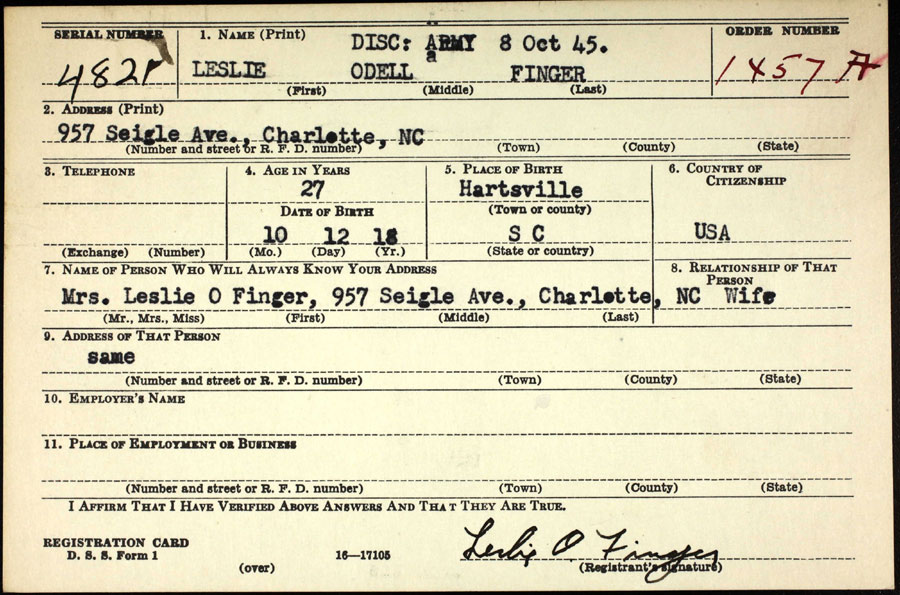 SERIAL NUMBER 1. NAME (Print) DISC: ARMY 8 Oct 45. ORDER NUMBER
a
LESLIE ODELL FINGER 1457 A
(First) (Middle) (Last)
2. ADDRESS (Print)
957 Seigle Ave., Charlotte, NC
(Number and street or R. F. D. number) (Town) (County) (State)
3. TELEPHONE 4. AGE IN YEARS 5. PLACE OF BIRTH 6. COUNTRY OF CITIZENSHIP
27 Hartsville
DATE OF BIRTH (Town or county)
10 12 18 S C USA
(Exchange) (Number) (Mo.) (Day) (Yr.) (State or country)
7. NAME OF PERSON WHO WILL ALWAYS KNOW YOUR ADDRESS 8. RELATIONSHIP OF THAT PERSON
Mrs. Leslie O Finger, 957 Seigle Ave., Charlotte, NC Wife
(Mr., Mrs., Miss) (First) (Middle) (Last)
9. ADDRESS OF THAT PERSON
same
(Number and street or R. F. D. number) (Town) (County) (State)
10. EMPLOYER'S NAME
11. PLACE OF EMPLOYMENT OR BUSINESS
(Number and street or R. F. D. number) (Town) (County) (State)
I AFFIRM THAT I HAVE VERIFIED ABOVE ANSWERS AND THAT THEY ARE TRUE.
REGISTRATION CARD
D. S. S. Form 1 16—17105 Leslie O Finger
(over) (Registrant's signature)